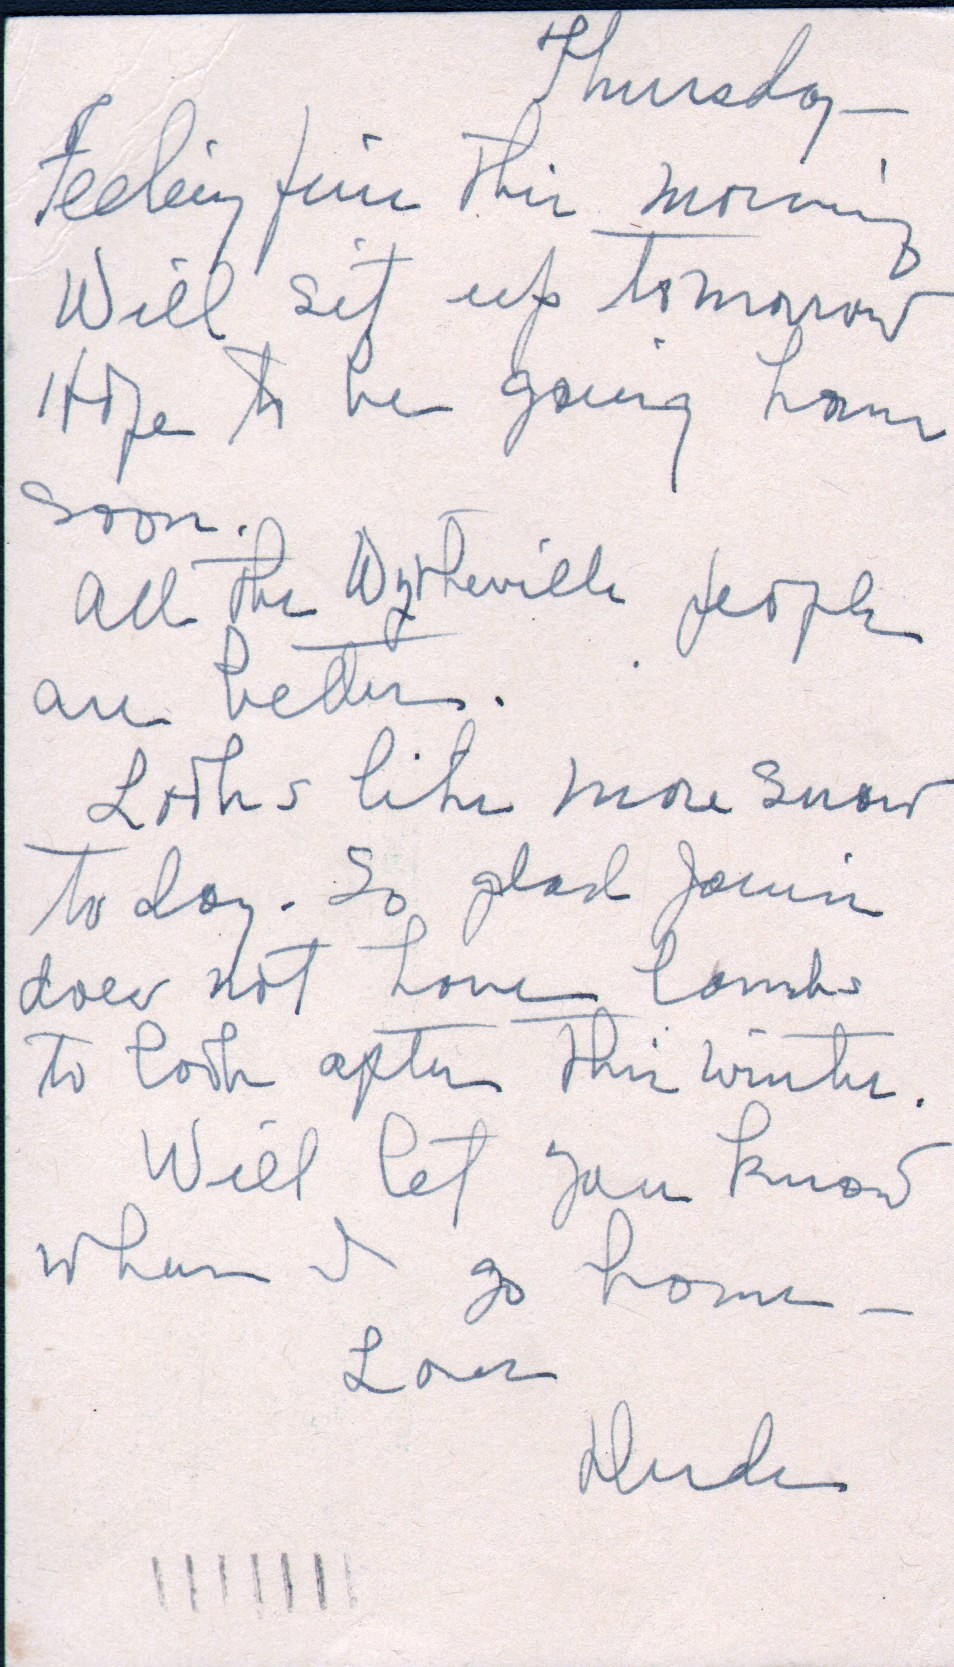 Thursday —
Feeling fine this morning
Will sit up tomorrow
Hope to be going home
soon.
All the Wytheville people
are better.
Looks like more snow
today. So glad
does not have lambs
to look after this winter.
Will let you know
when I go home —
Love